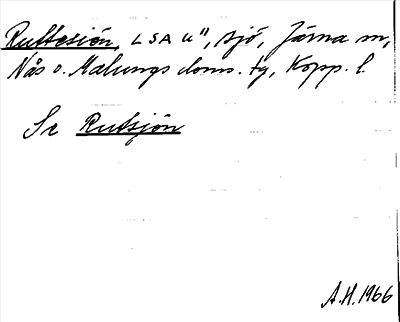 Ruttesjön, LSA u", sjö, Järna sn,
Nås o. Malungs doms. tg, Kopp. l.
Se Rutsjön
A.H. 1966